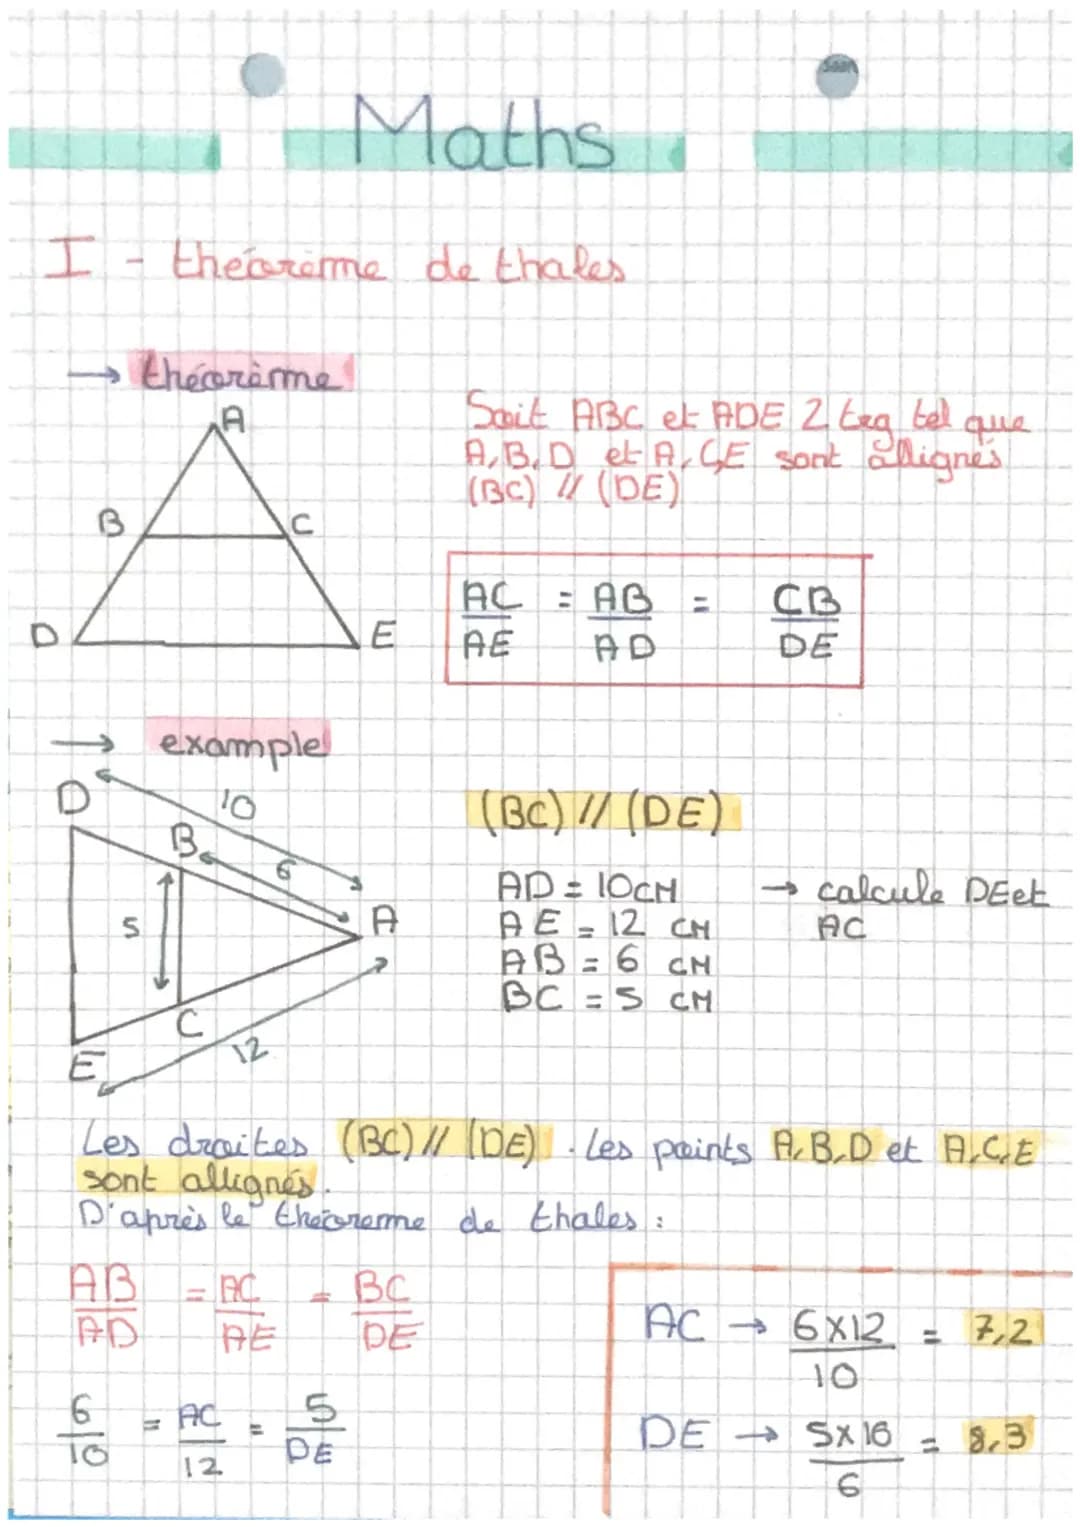 Maths
I - théorème de thales
→ théorème
A
B C
D E
Soit ABC et ADE 2 trg tel que
A, B, D et A, C, E sont allignés
(BC) // (DE)
AC/AE = AB/AD = CB/DE
→ example
D
10
B
6
5
A
C
12
E
(BC) // (DE)
AD = 10CM → calcule DE et
AE = 12 CM AC
AB = 6 CM
BC = 5 CM
Les droites (BC) // (DE). Les points A, B, D et A, C, E
sont allignés.
D'après le théoreme de thales :
AB/AD = AC/AE = BC/DE
6/10 = AC/12 = 5/DE
AC → 6X12/10 = 7,2
DE → 5X10/6 = 8,3